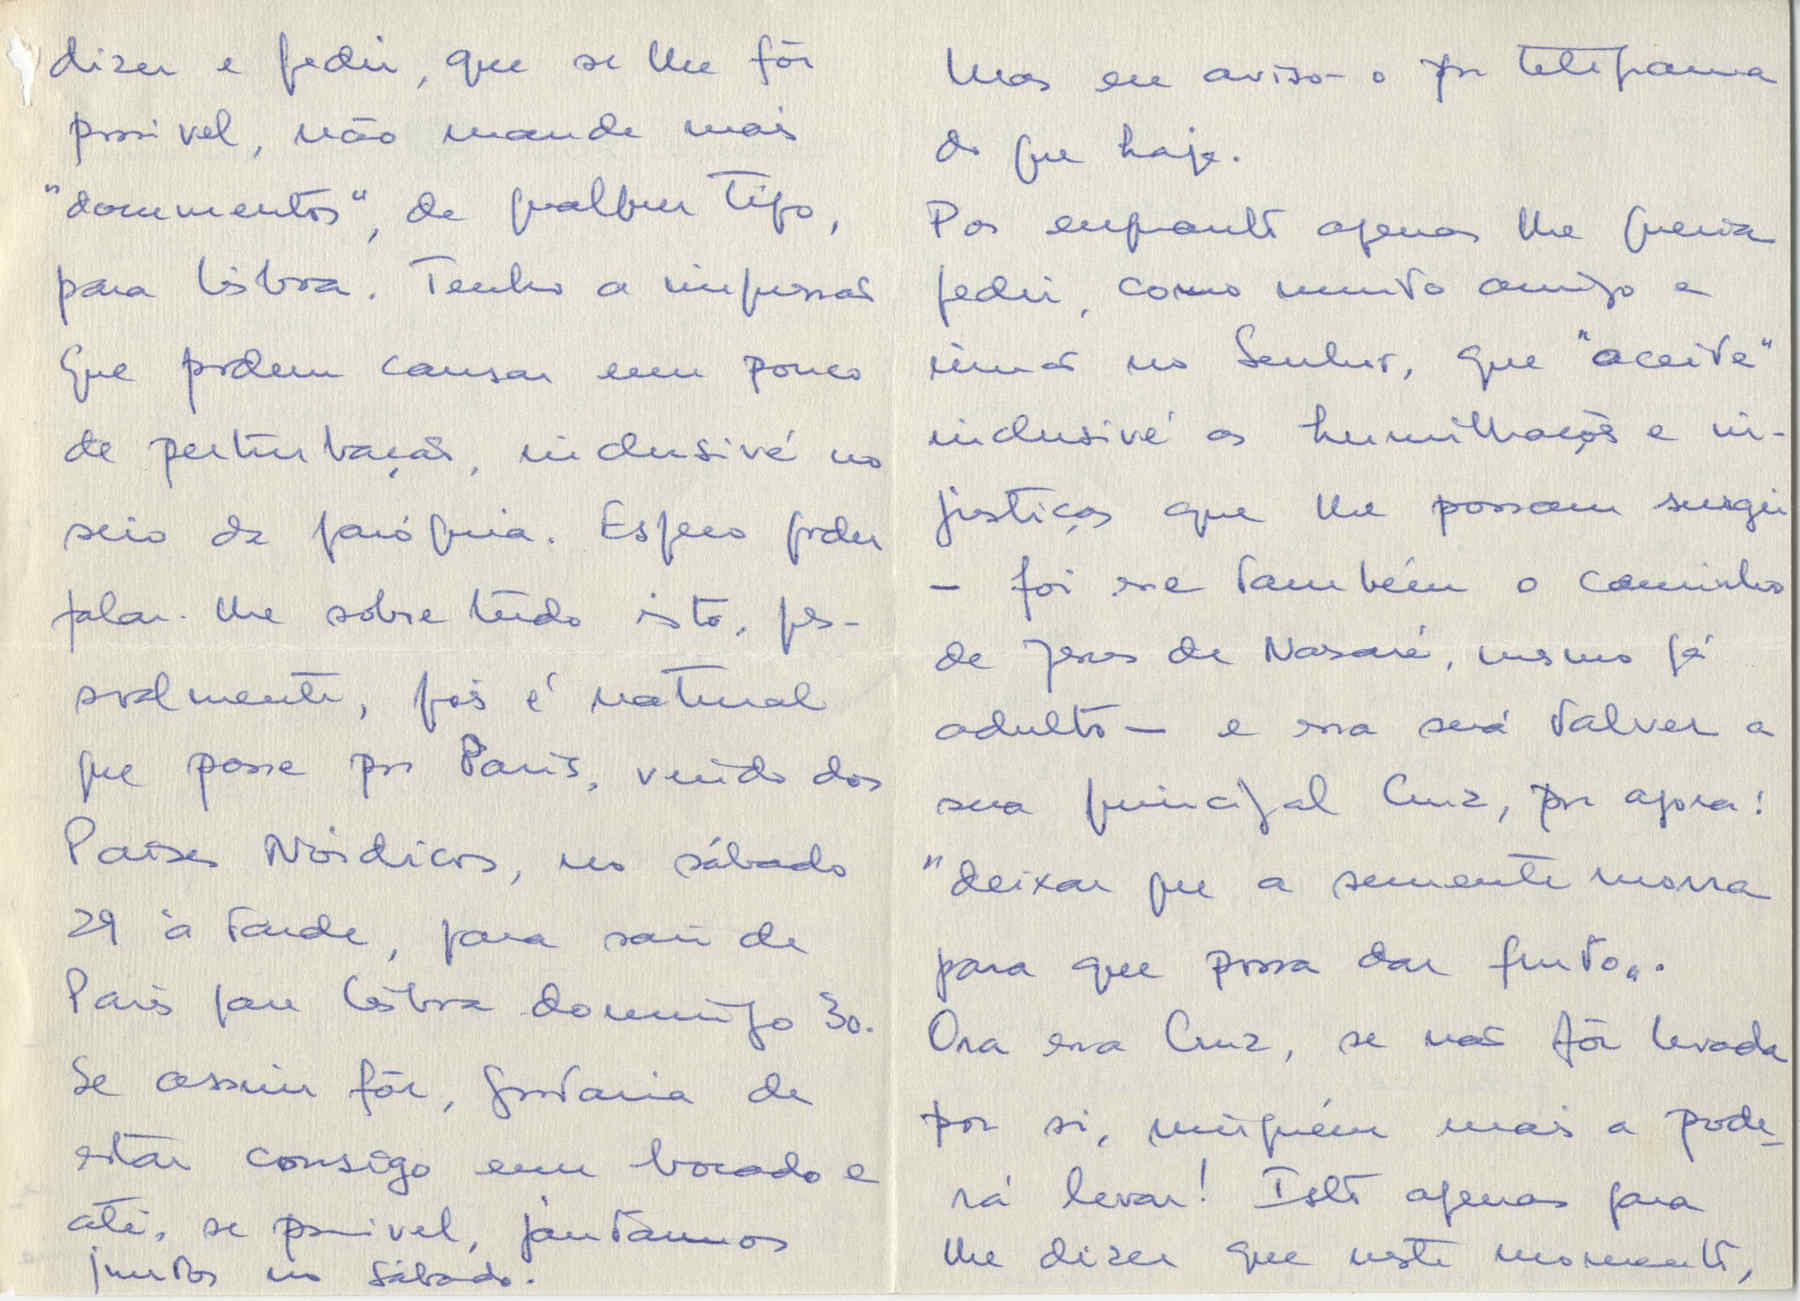 dizer e pedir, que se lhe fôr
possivel, não mande mais
"documentos", de qualquer tipo,
para Lisboa. Tenho a impressão
que podem causar um pouco
de perturbação, inclusivé no
seio da paróquia. Espero poder
falar-lhe sobre tudo isto, pes-
soalmente, pois é natural
que passe por Paris, vindo dos
Países Nórdicos, no sábado
29 à tarde, para sair de
Paris para Lisboa domingo 30.
Se assim fôr, gostaria de
estar consigo um bocado e
até, se possivel, jantarmos
juntos no sábado.
Mas eu aviso-o por telegrama
do que haja.
Por enquanto apenas lhe queria
pedir, como muito amigo e
irmão no Senhor, que "aceite"
inclusivé as humilhações e in-
justiças que lhe possam surgir
— foi esse também o caminho
de Jesus de Nasaré, mesmo já
adulto — e essa será talvez a
sua principal Cruz, por agora:
"deixar que a semente morra
para que possa dar fruto".
Ora essa Cruz, se não fôr levada
por si, ninguém mais a pode-
rá levar! Isto apenas para
lhe dizer que neste momento,